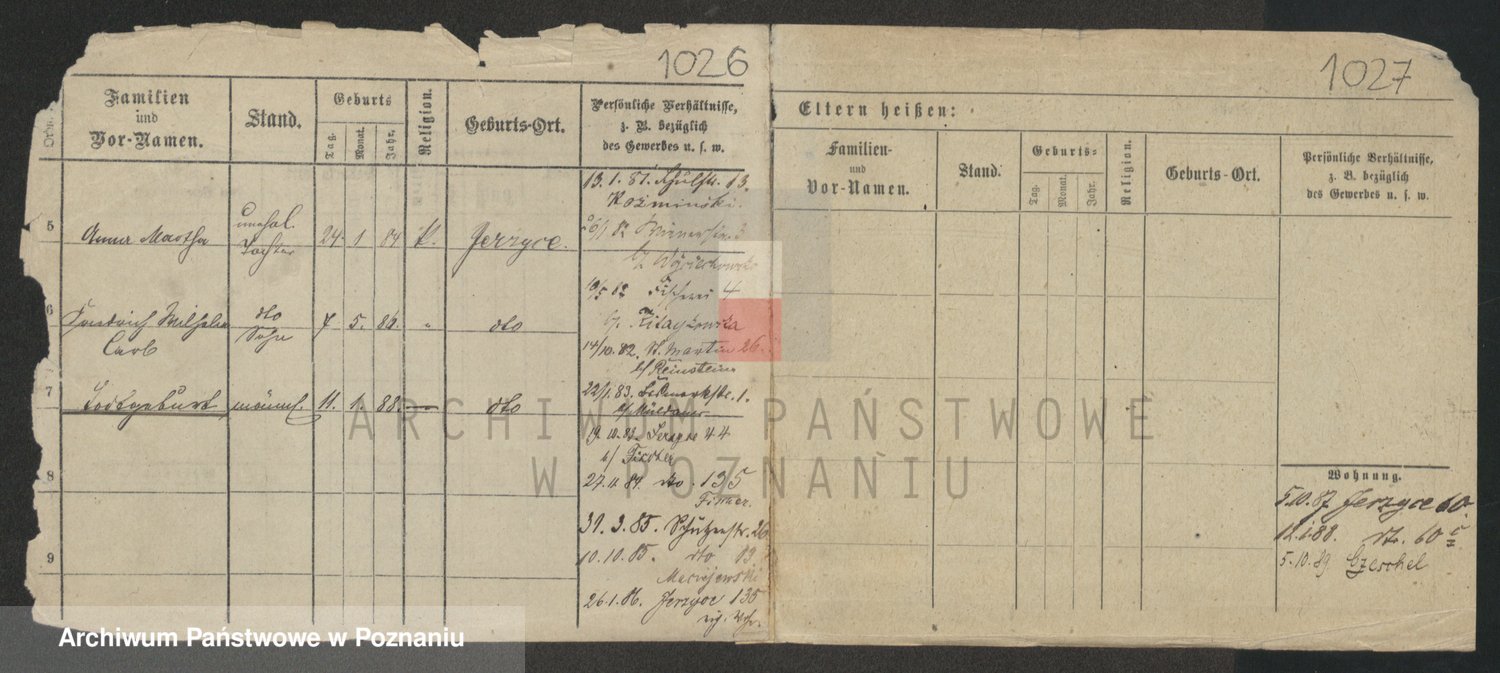 1026
Ordn.
Familien
und
Vor-Namen.
Stand.
Geburts
Tag.
Monat.
Jahr.
Religion.
Geburts-Ort.
Persönliche Verhältnisse,
z. B. bezüglich
des Gewerbes u. s. w.
5
Anna Martha
Tochter
24 1 84
k.
Jerzyce.
6
Friedrich Wilhelm
Carl
dto
Sohn
7. 5. 86
"
dto
7
Todtgeburt
männl.
11. 1. 88.
dto
8
9
13. 1. 81. Schulstr. 13.
Kozminski.
26/1 82 Wienerstr. 3
b/ Wojciechowska
10/5 82 Fischerei 4
b/.
14/10. 82. St. Martin 26.
b/ Reinstein
22/1. 83. Bismarkstr. 1.
b/ Müldauer
19. 10. 83. Jerzyce 44
b/ Fischer
27. 11. 84. dto. 135
31. 3. 85. Schützenstr. 26
10. 10. 85. dto 19.
Maciejewski
26. 1. 86. Jerzyce 135
1027
Eltern heißen:
Familien-
und
Vor-Namen.
Stand.
Geburts-
Tag.
Monat.
Jahr.
Religion.
Geburts-Ort.
Persönliche Verhältnisse,
z. B. bezüglich
des Gewerbes u. s. w.
Wohnung.
5. 10. 87 Jerzyce 60.
12. 1. 88. dto. 60 c
5. 10. 89
ARCHIWUM PAŃSTWOWE
W POZNANIU
Archiwum Państwowe w Poznaniu